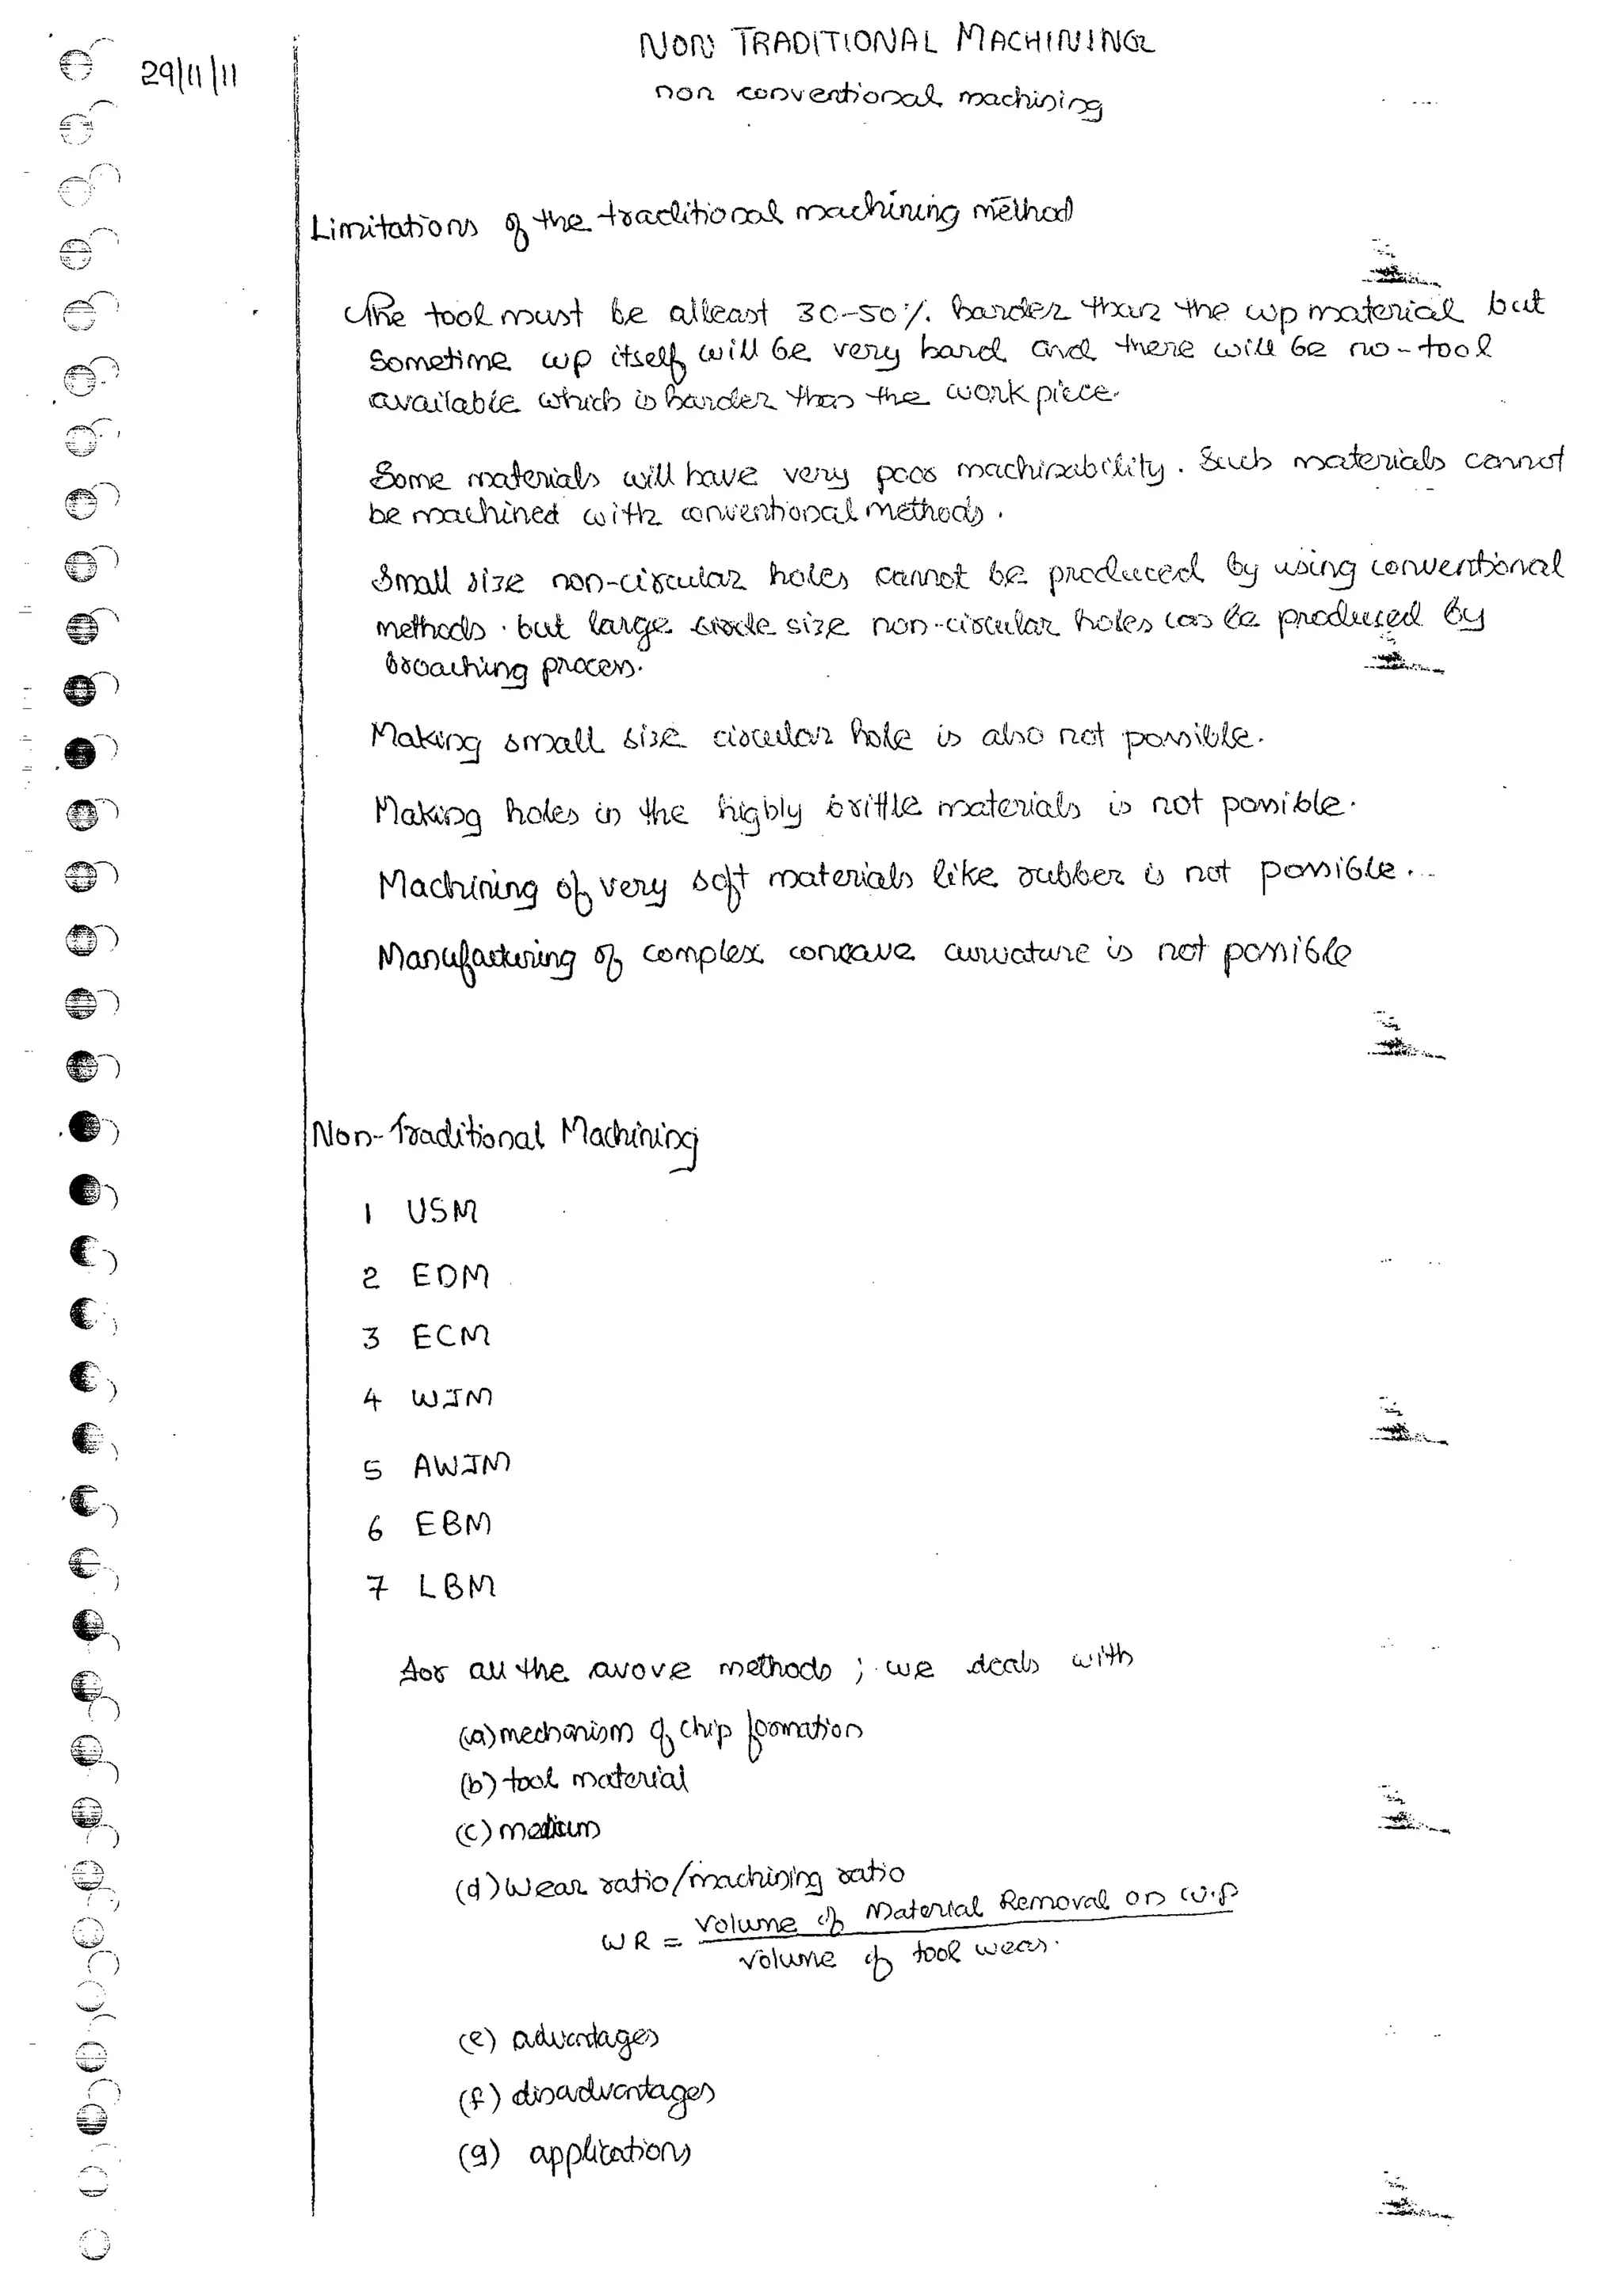 NON TRADITIONAL MACHINING
29/11/11
non conventional machining
Limitations of the traditional machining method
The tool must be atleast 30-50%. harder than the wp material but
sometime wp itself will be very hard and there will be no-tool
available which is harder than the work piece.
Some materials will have very poor machinability. Such materials cannot
be machined with conventional methods.
Small size non-circular holes cannot be produced by using conventional
methods. but large size non-circular holes can be produced by
broaching process.
Making small size circular hole is also not possible.
Making holes in the highly brittle materials is not possible.
Machining of very soft materials like rubber is not possible.
Manufacturing of complex concave curvature is not possible
Non-Traditional Machining
1 USM
2 EDM
3 ECM
4 WJM
5 AWJM
6 EBM
7 LBM
for all the avove methods ; we deals with
(a) mechanism of chip formation
(b) tool material
(c) medium
(d) Wear ratio/machining ratio
WR = Volume of Material Removal on w.p
volume of tool wear.
(e) advantages
(f) disadvantages
(g) applications